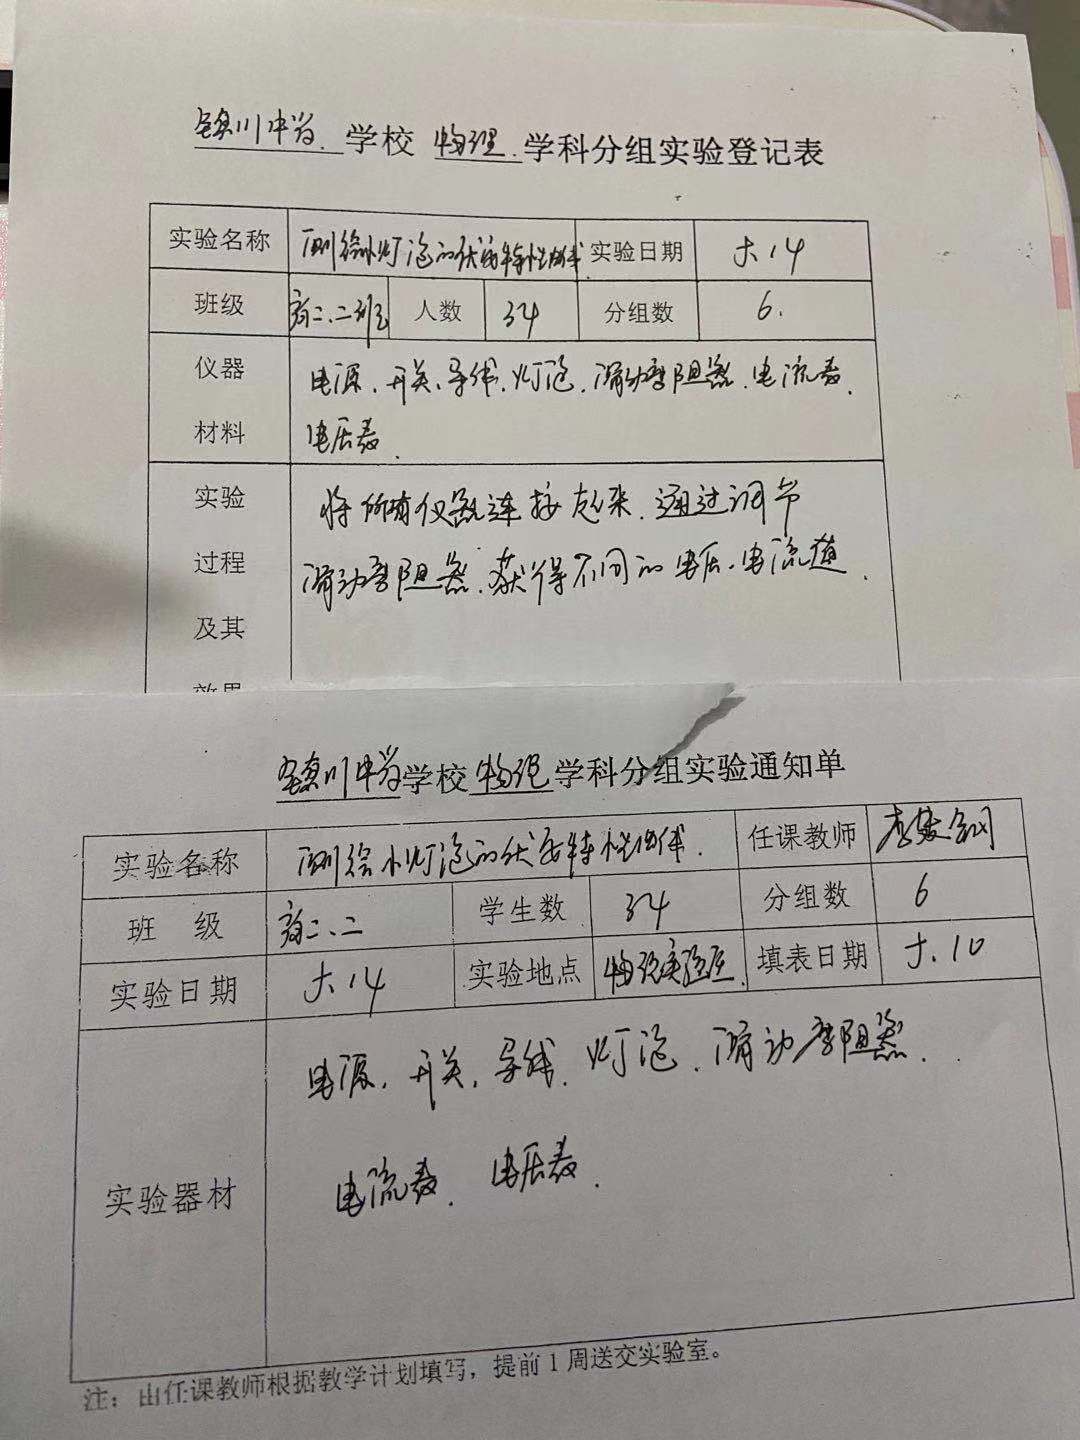 镇川中学 学校 物理 学科分组实验登记表
实验名称 测绘小灯泡的伏安特性曲线 实验日期 5.14
班级 高二.二班 人数 34 分组数 6.
仪器 电源.开关.导线.灯泡.滑动变阻器.电流表.
材料 电压表.
实验 将所有仪器连接起来.通过调节
过程 滑动变阻器.获得不同的电压.电流值.
及其
效果
镇川中学学校物理学科分组实验通知单
实验名称 测绘小灯泡的伏安特性曲线. 任课教师
班 级 高二.二 学生数 34 分组数 6
实验日期 5.14 实验地点 物理实验室. 填表日期 5.10
电源.开关.导线.灯泡.滑动变阻器.
实验器材 电流表. 电压表.
注：由任课教师根据教学计划填写，提前1周送交实验室。